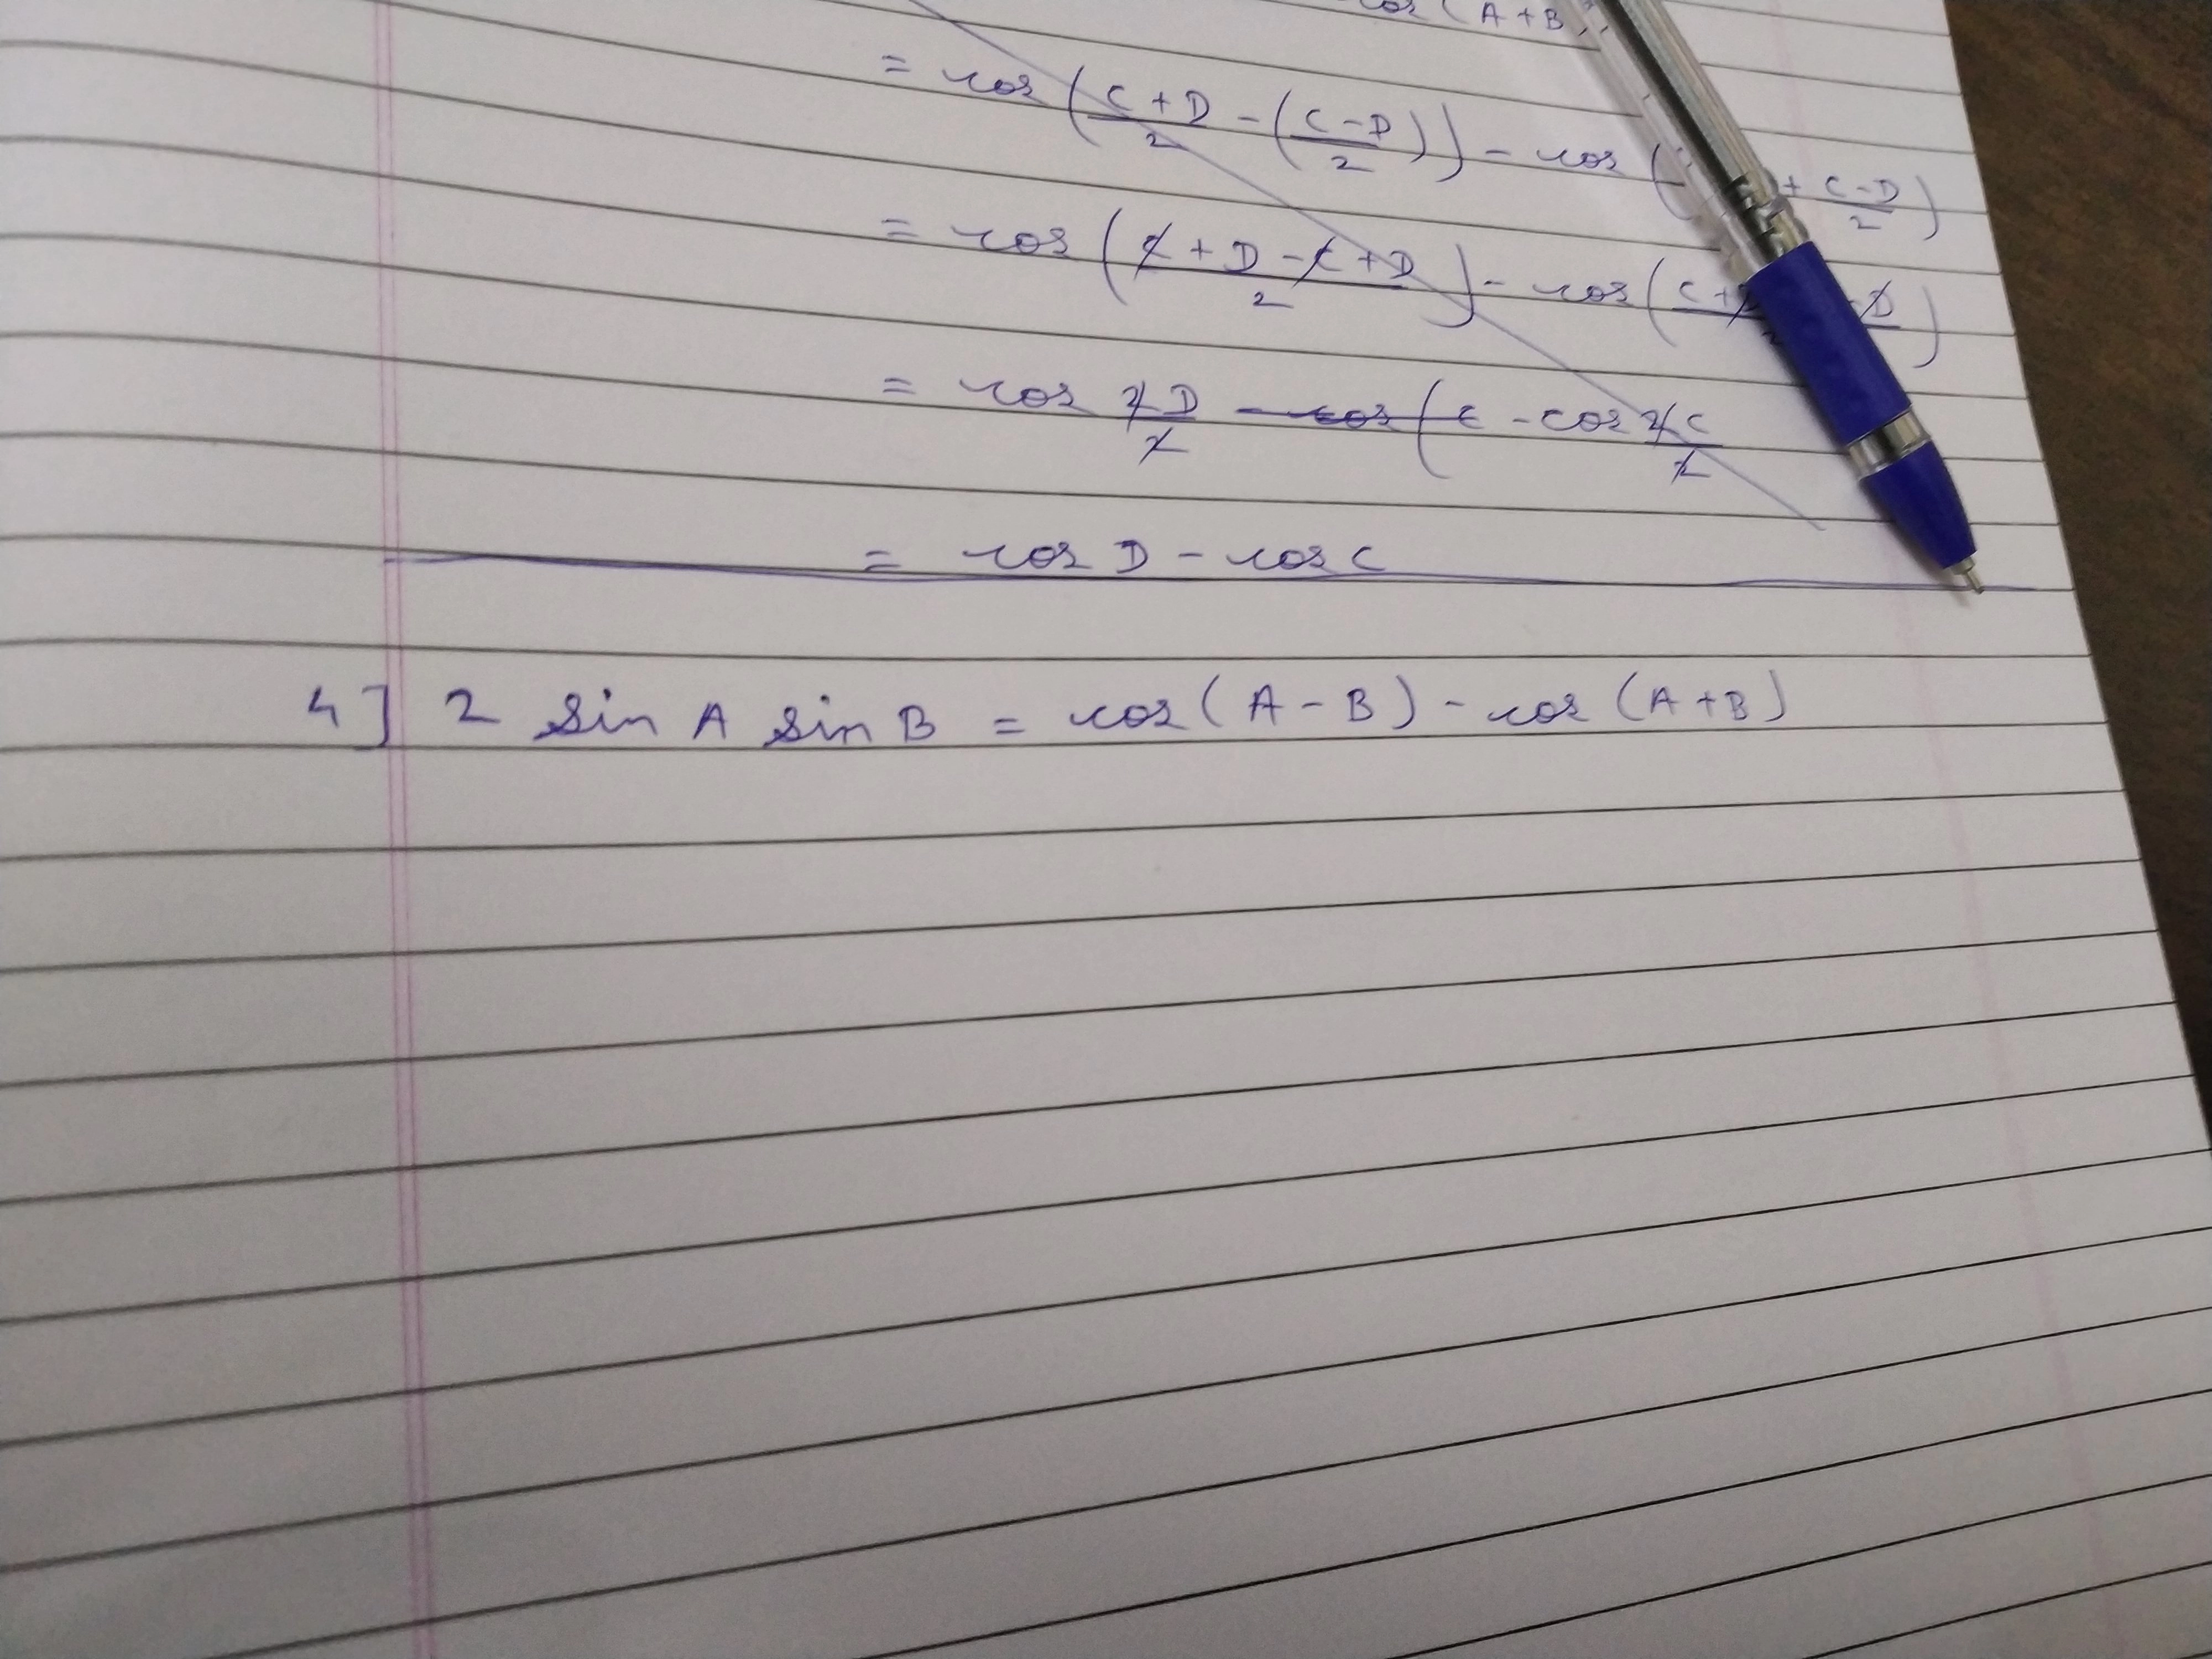 cos (A+B)
= cos (C+D/2 - (C-D/2)) - cos ( + C-D/2)
= cos (C+D-C+D/2) - cos (C+ -D/)
= cos 2D/2 - cos (C - cos 2C/2
= cos D - cos C
4] 2 sin A sin B = cos (A-B) - cos (A+B)